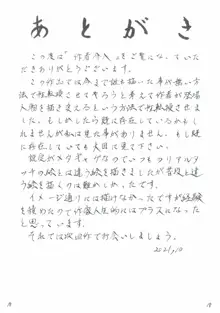 あとがき
この度は『作者介入』をご覧になっていた
だきありがとうございます。
この作品では今まで誰も描いた事が無い方
法で性転換させてやろうと考えて作者が登場
人物を描きまえるという方法で性転換させま
した。もしかしたら既に存在しているかもし
れませんが私は見た事がありません。もし既
に存在していても大目に見て下さい。
設定がメタギャグなのでいつものリアルタ
ッチの絵とは違う絵を描きましたが普段と違
う絵を描くのは難しかったです。
イメージ通りには描けなかったですが経験
を積めたので作家人生的にはプラスになった
と思っています。
それでは次回作でお会いしましょう。